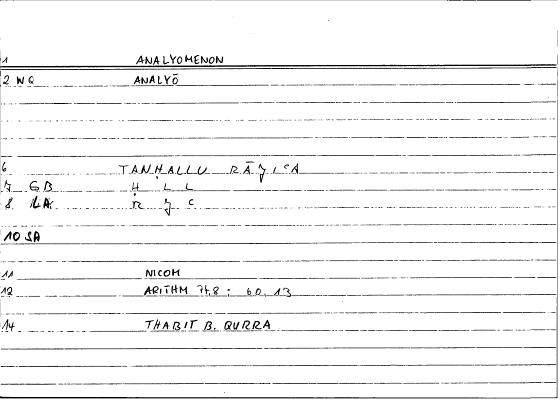 1 ANALYOMENON
2 WQ ANALYŌ
6 TANḤALLU RĀǦIʿA
7 GB Ḥ L L
8 LA R Ǧ ʿ
10 SA
11 NICOM
12 ARITHM 74,8 : 60,13
14 THABIT B. QURRA